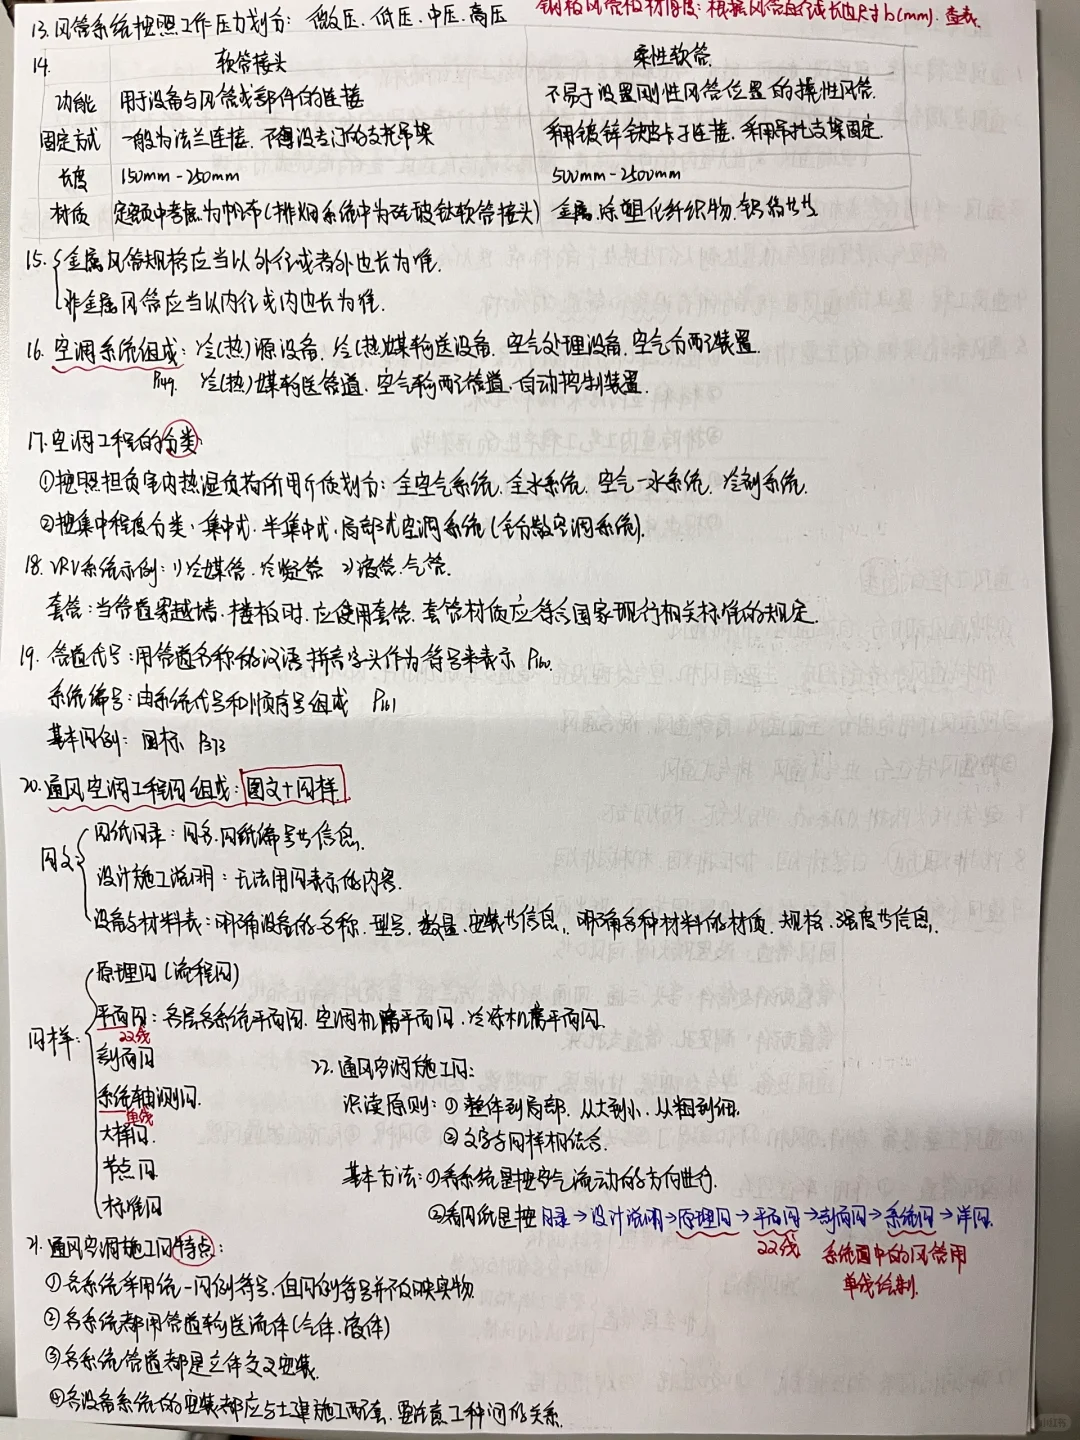 13.风管系统按照工作压力划分：微压.低压.中压.高压
钢板风管板材厚度：根据风管直径或长边尺寸b(mm).查表.
14. 软管接头 柔性软管.
功能 用于设备与风管或部件的连接 不易于设置刚性风管位置的挠性风管.
固定方式 一般为法兰连接.不得设专门的支托吊架 采用镀锌铁皮卡子连接.采用吊托支架固定.
长度 150mm-250mm 500mm-2500mm
材质 定额中考虑为帆布(排烟系统中为硅玻钛软管接头) 金属.涂塑化纤织物.铝箔等.
15.{金属风管规格应当以外径或者外边长为准.
非金属风管应当以内径或内边长为准.
16. 空调系统组成：冷(热)源设备.冷(热)媒输送设备.空气处理设备.空气分配装置.
P149. 冷(热)媒输送管道.空气输配管道.自动控制装置.
17.空调工程的分类:
①按照担负室内热湿负荷所用介质划分：全空气系统.全水系统.空气-水系统.冷剂系统.
②按集中程度分类.集中式.半集中式.局部式空调系统(全分散空调系统).
18.VRV系统示例：1)冷媒管.冷凝管 2)液管.气管.
套管：当管道穿越墙.楼板时.应使用套管.套管材质应符合国家现行相关标准的规定.
19. 管道代号：用管道名称的汉语拼音字头作为符号来表示 P160.
系统编号：由系统代号和顺序号组成 P161
基本图例：图标 P373
20.通风空调工程图组成：图文+图样.
图文：{图纸目录：图名.图纸编号等信息.
设计施工说明：无法用图表示的内容.
设备与材料表：明确设备的名称.型号.数量.安装等信息.明确各种材料的材质.规格.强度等信息.
图样：{原理图(流程图)
平面图：各层各系统平面图.空调机房平面图.冷冻机房平面图.
双线
剖面图
系统轴测图.
单线
大样图.
节点图
标准图
22.通风空调施工图：
识读原则：①整体到局部.从大到小.从粗到细.
②文字与图样相结合.
基本方法：①看系统是按空气流动的方向进行.
②看图纸是按目录→设计说明→原理图→平面图→剖面图→系统图→详图.
双线 系统图中的风管用
单线绘制.
21.通风空调施工图特点：
①各系统采用统一图例符号.但图例符号并不反映实物.
②各系统都用管道输送流体(气体.液体)
③各系统管道都是立体交叉安装.
④各设备系统的安装都应与土建施工配套.要注意工种间的关系.